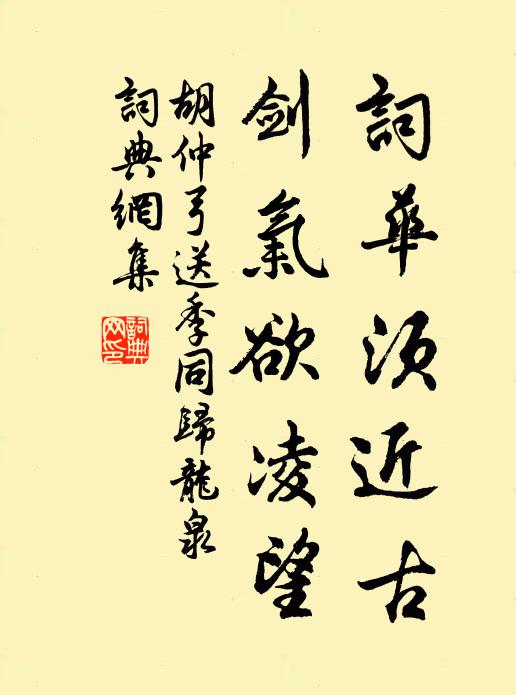 詞華須近古
劍氣欲凌望
胡仲弓送季同歸龍泉
詞典網集
詞典網印